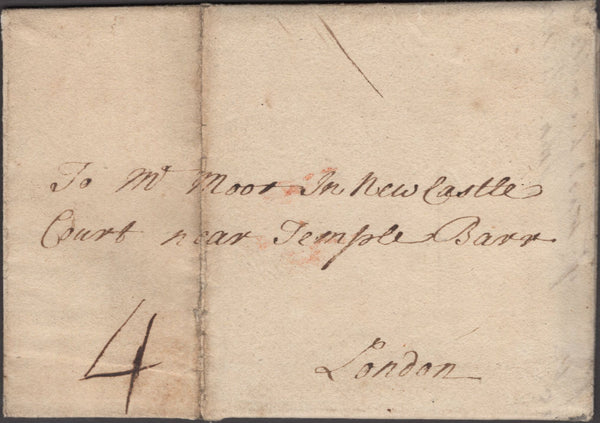 To Mr Moor In New Castle
Court near Temple Barr
London
4